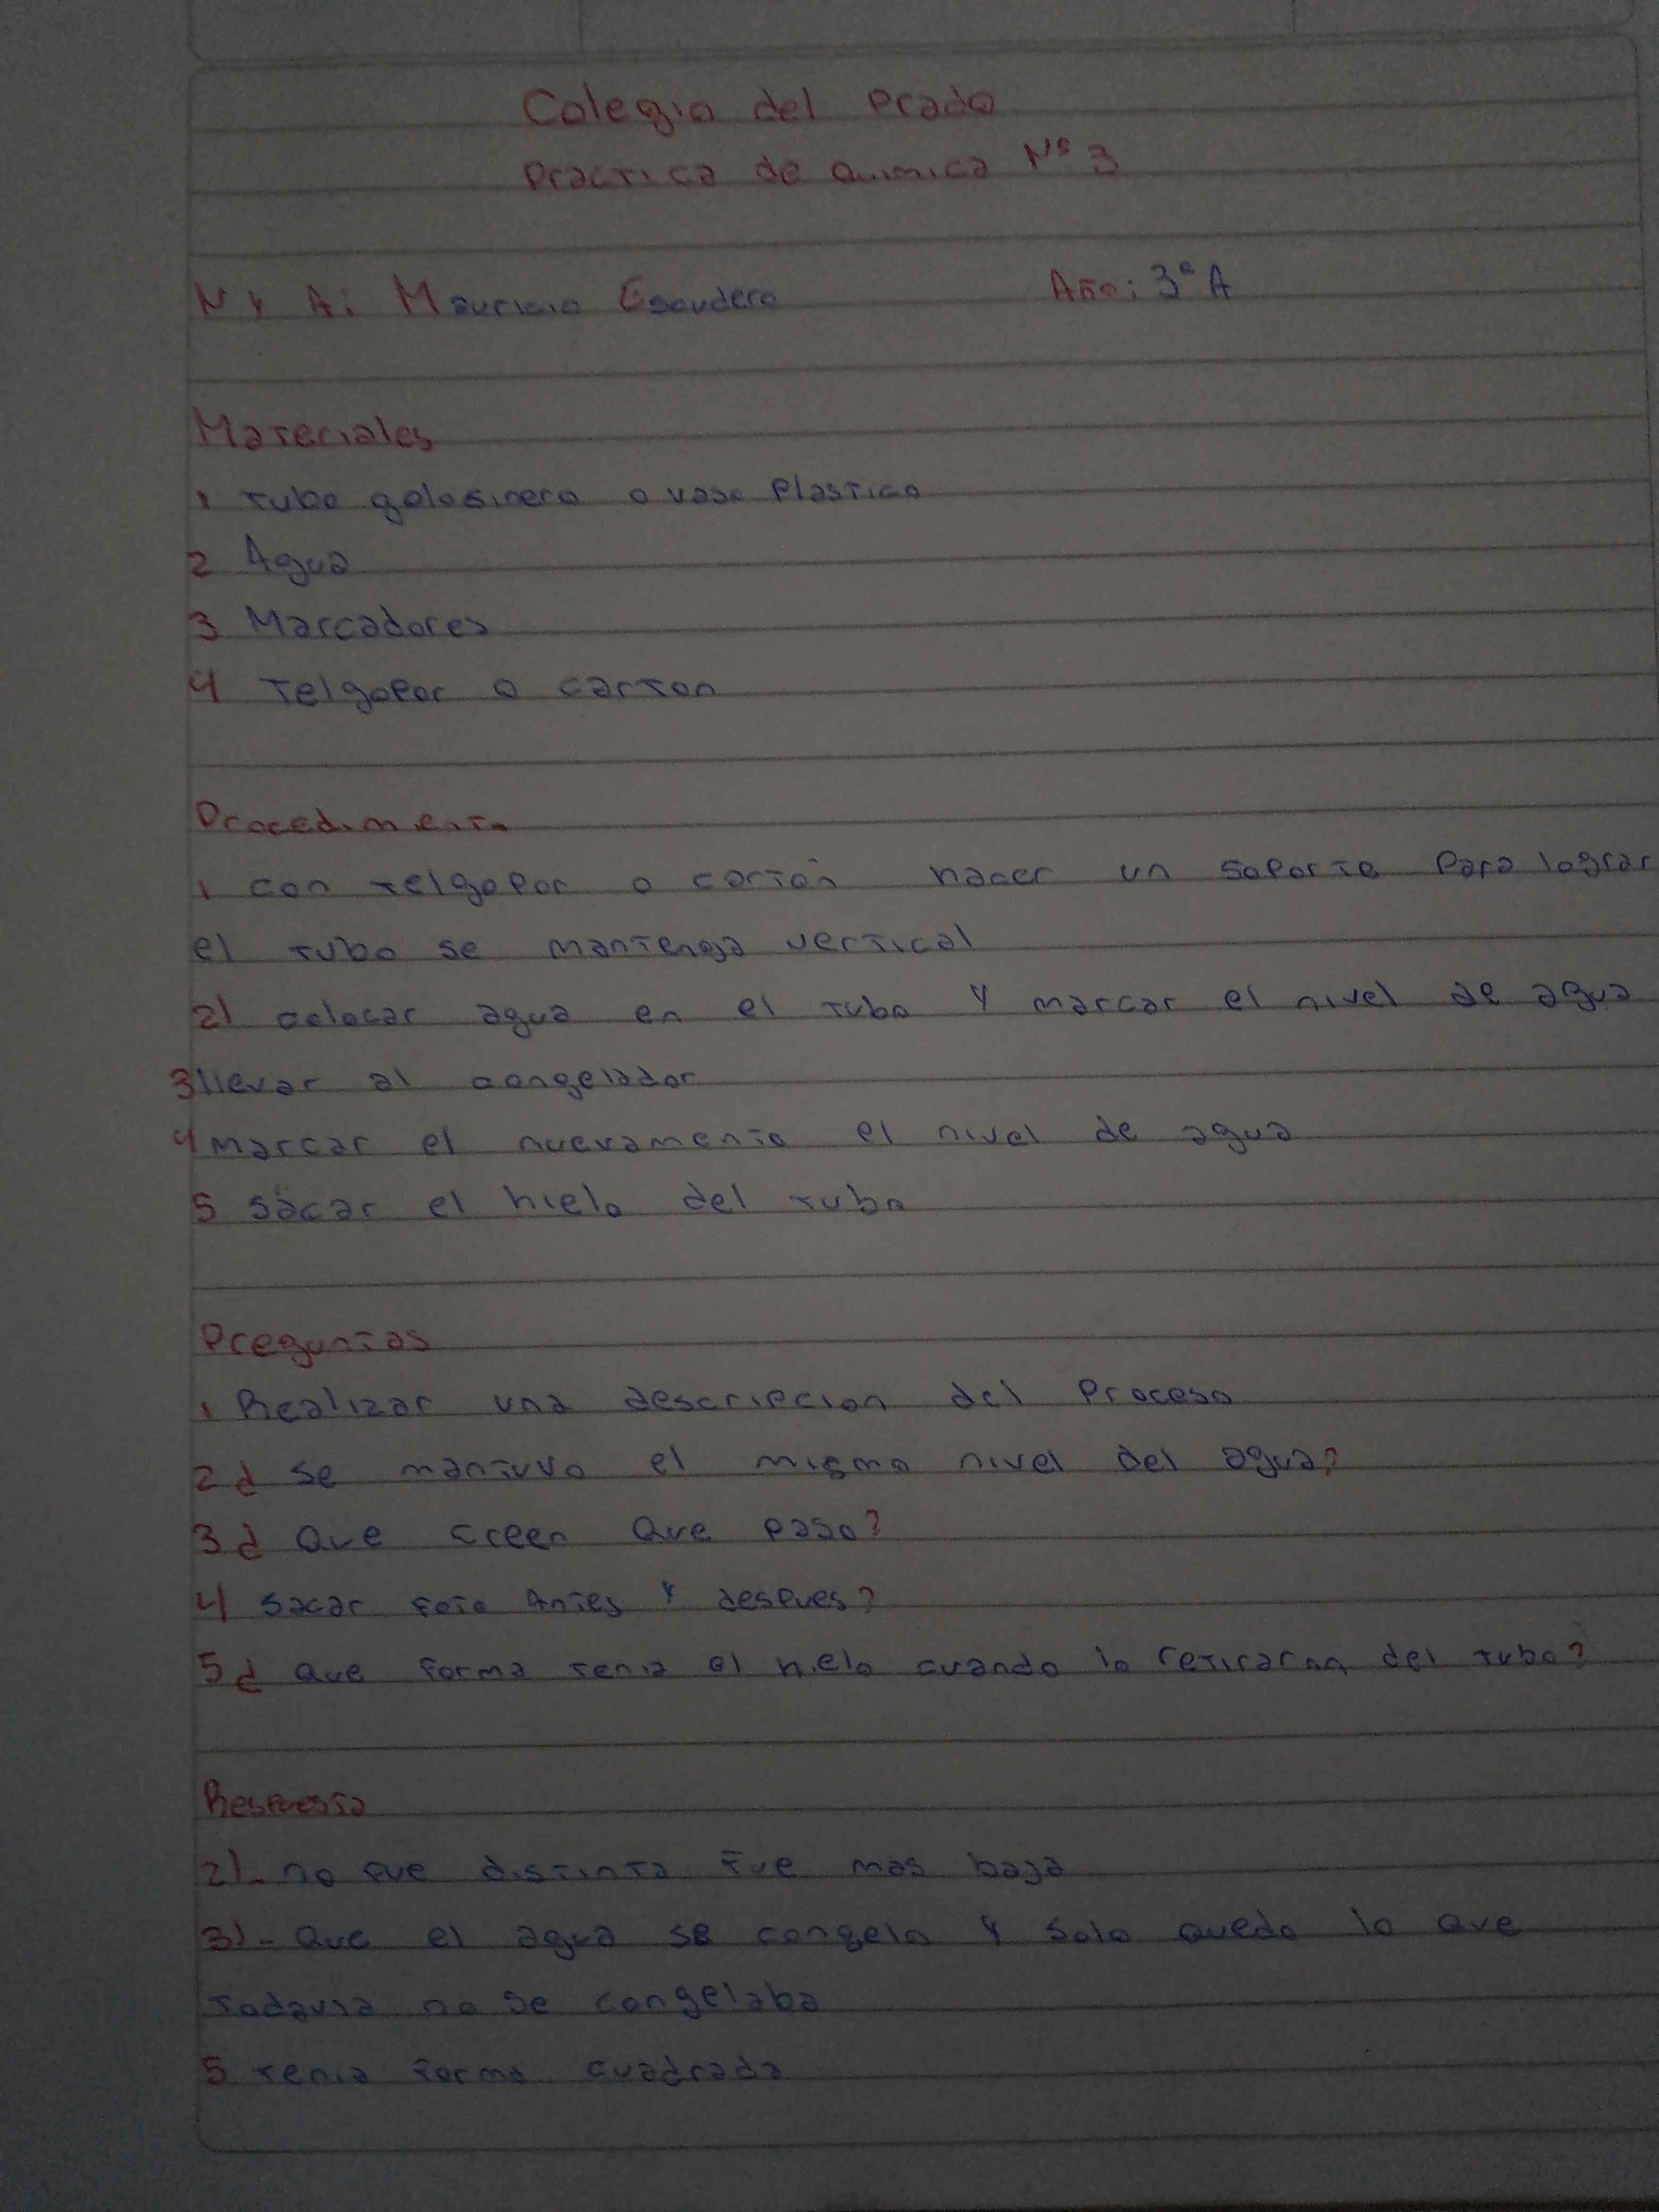 Colegio del Prado
Practica de Quimica Nº 3
N y A: Mauricio Escudero Año: 3ª A
Materiales
1 Tubo golosinero o vaso Plastico
2 Agua
3 Marcadores
4 Telgopor o carton
Procedimiento
1 con telgopor o cartón hacer un soporte Para lograr
el tubo se mantenga vertical
2) colocar agua en el tubo y marcar el nivel de agua
3 llevar al congelador
4 marcar el nuevamente el nivel de agua
5 sacar el hielo del tubo
Preguntas
1 Realizar una descripcion del Proceso
2 ¿ Se mantuvo el mismo nivel del agua?
3 ¿ Que creen Que paso?
4) Sacar foto Antes y despues?
5 ¿ Que forma tenia el hielo cuando lo retiraron del tubo?
Respuesta
2)- no fue distinta fue mas baja
3)- Que el agua se congelo y solo quedo lo que
todavia no se congelaba
5 tenia forma cuadrada